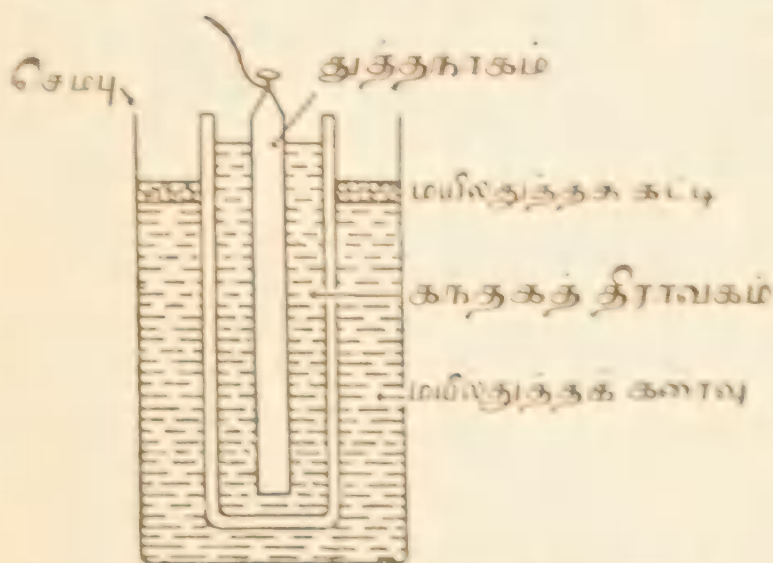 துத்தநாகம்
செம்பு
மயில்துத்தக கட்டி
கந்தகத் திராவகம்
மயில்துத்தக் கரைவு